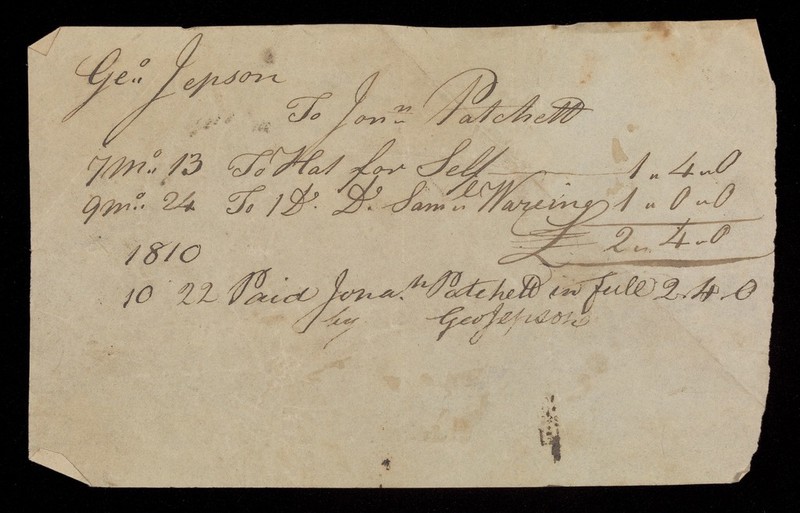 Geo. Jepson
To Jonn. Patchett
7 Mo. 13 To Hat for Self 1 " 4 " 0
9 Mo. 24 To 1 Do. Do. Saml. Wareing 1 " 0 " 0
£ 2 " 4 " 0
1810
10 22 Paid Jonath. Patchett in full 2 . 4 . 0
by Geo Jepson